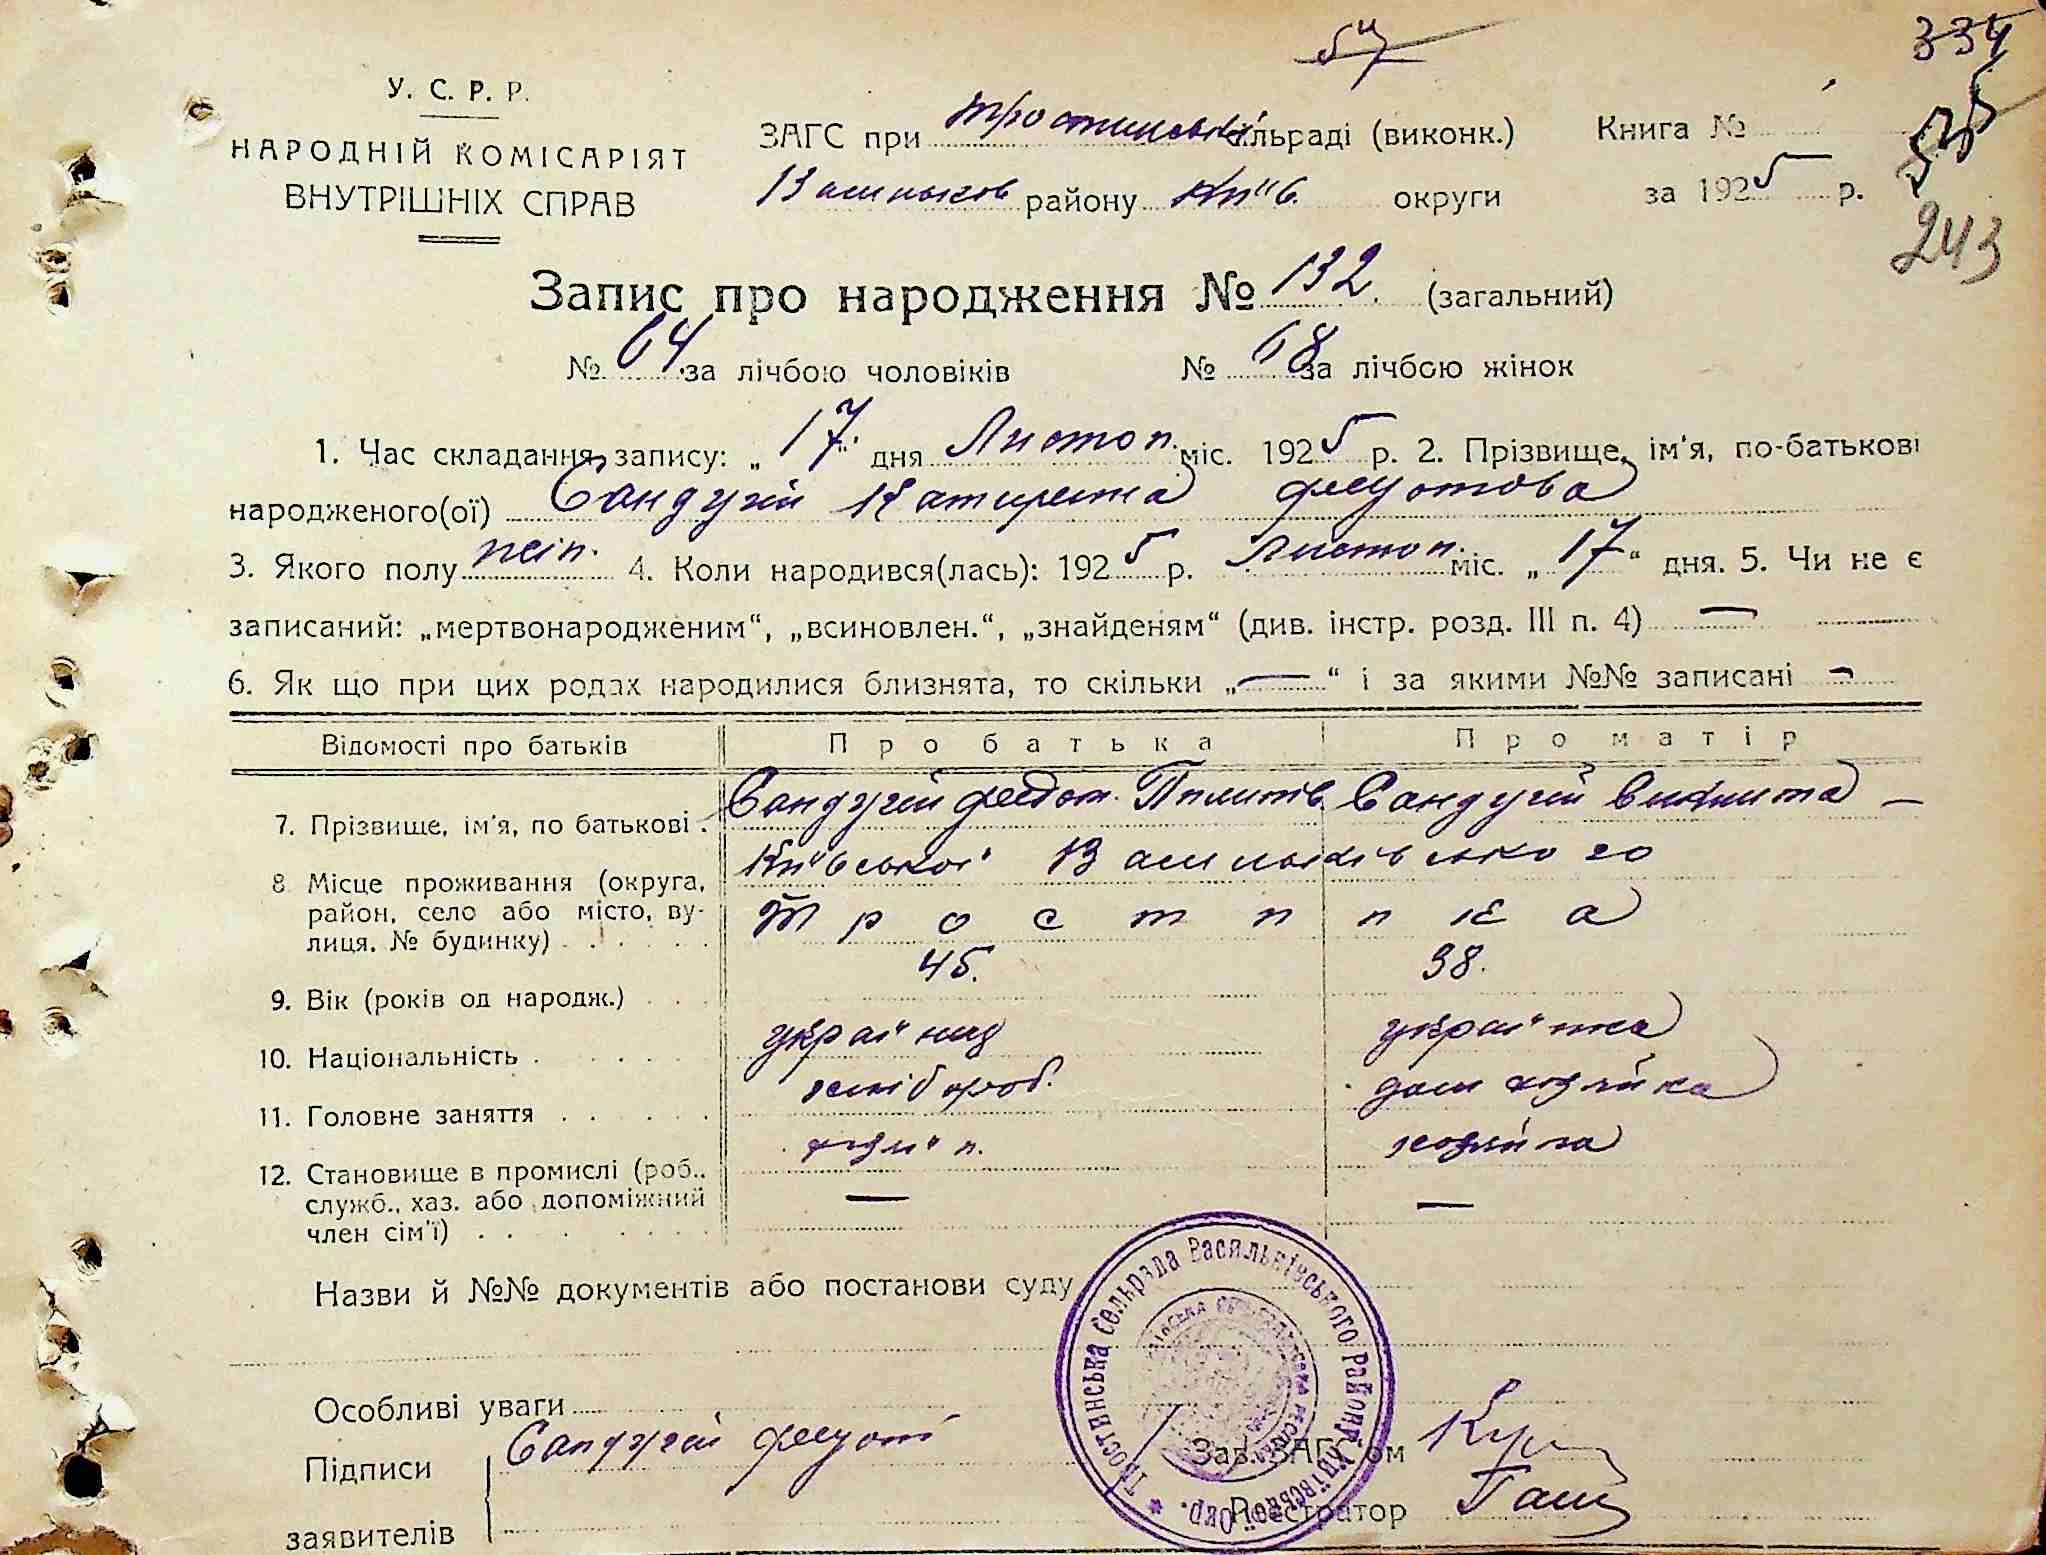 54
334
У. С. Р. Р.
НАРОДНІЙ КОМІСАРІЯТ
ВНУТРІШНІХ СПРАВ
ЗАГС при Тростинській сільраді (виконк.) Книга №
535
Васильков району Київ. округи за 1925 р.
243
Запис про народження № 132 (загальний)
№ 64 за лічбою чоловіків № 68 за лічбою жінок
1. Час складання запису: „17“ дня Листоп. міс. 1925 р. 2. Прізвище, ім'я, по-батькові
народженого(ої) Сандугій Катирина Федотова
3. Якого полу жін. 4. Коли народився(лась): 1925 р. Листоп. міс. „17“ дня. 5. Чи не є
записаний: „мертвонародженим“, „всиновлен.“, „знайденям“ (див. інстр. розд. III п. 4) —
6. Як що при цих родах народилися близнята, то скільки „—“ і за якими №№ записані —
Відомості про батьків Про батька Про матір
7. Прізвище, ім'я, по батькові. Сандугій Федот. Сандугій —
8 Місце проживання (округа, район, село або місто, вулиця, № будинку) Київської Васильківського
Тростинка
9. Вік (років од народж.) 45. 38.
10. Національність українц українка
11. Головне заняття хлібороб. дом хозяйка
12. Становище в промислі (роб., служб., хаз. або допоміжний член сім'ї) хозяїн. хозяйка
— —
Назви й №№ документів або постанови суду
Особливі уваги
Підписи заявителів Сандугій Федот
Зав. ЗАГС'ом
Реєстратор
Тростинська Сельрада Васильківського Району Київської Окр.